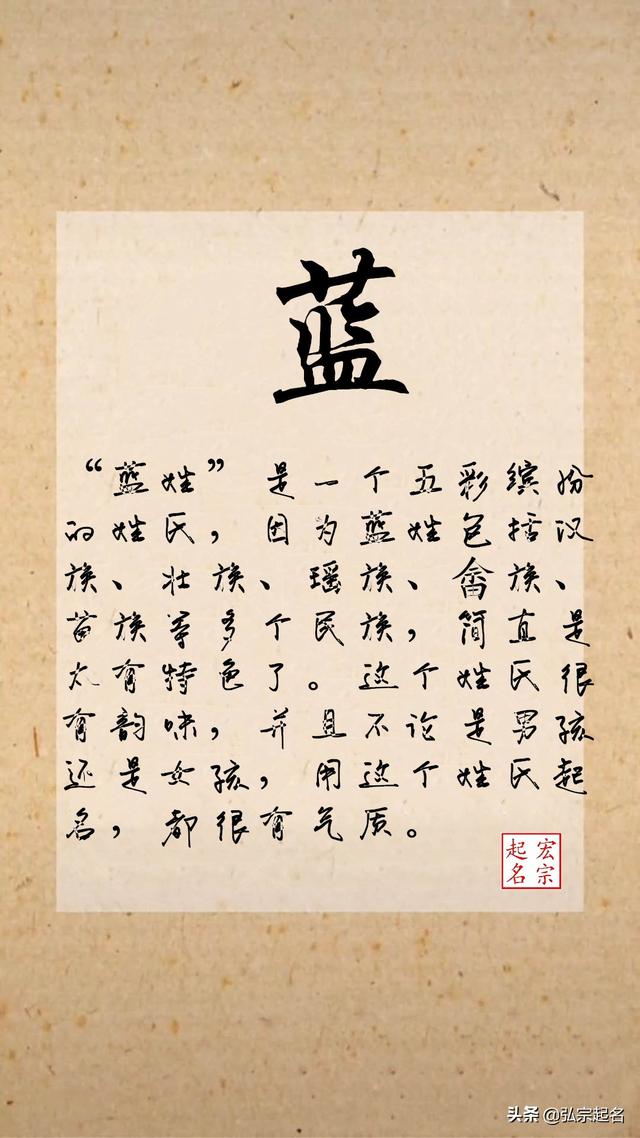 蓝
“蓝姓”是一个五彩缤纷
的姓氏，因为蓝姓包括汉
族、壮族、瑶族、畲族、
苗族等多个民族，简直是
太有特色了。这个姓氏很
有韵味，并且不论是男孩
还是女孩，用这个姓氏起
名，都很有气质。
宏宗
起名
头条 @弘宗起名